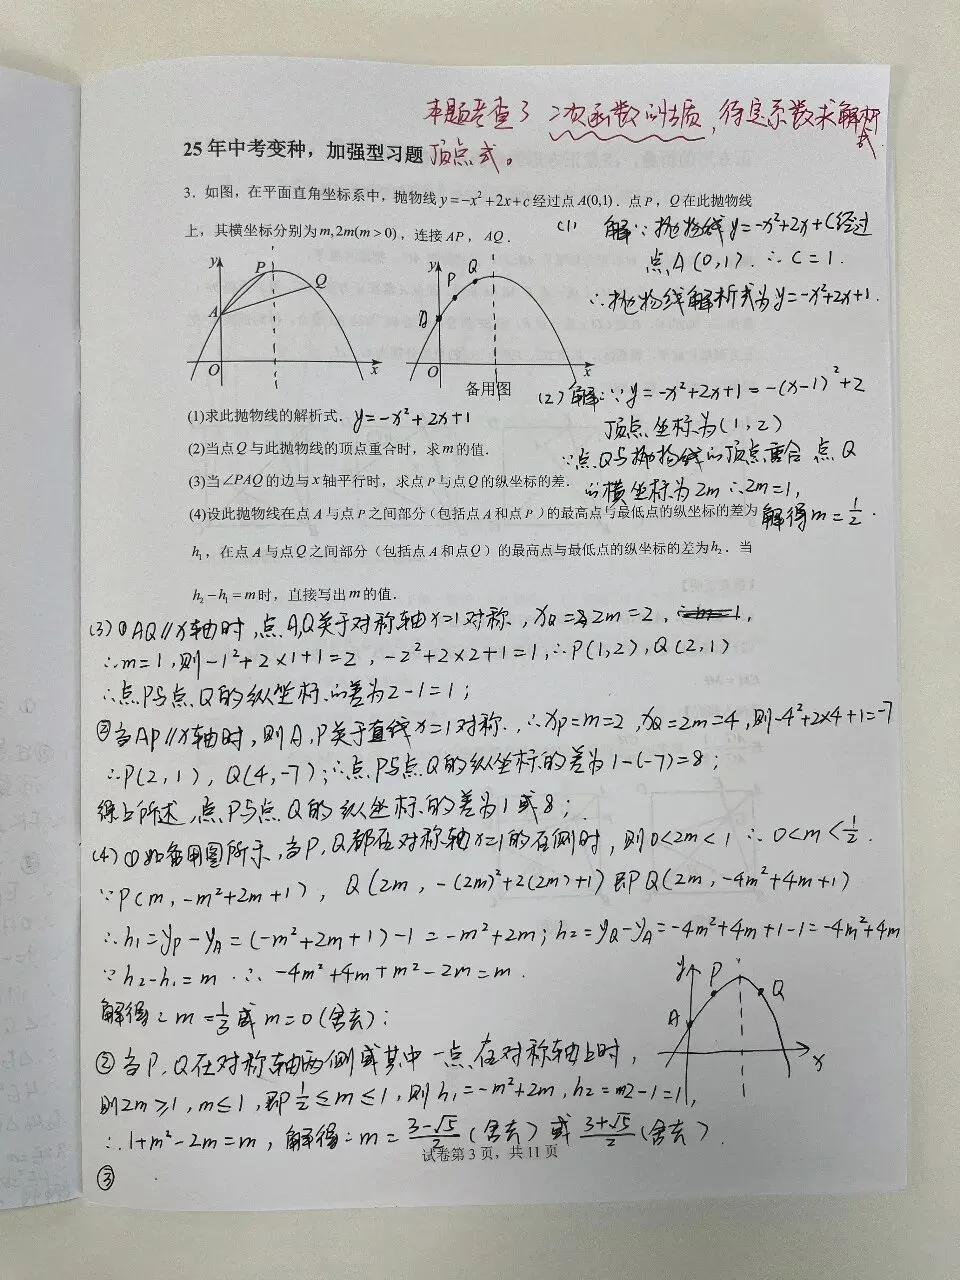 本题考查了二次函数的性质，待定系数求解析式
25年中考变种，加强型习题 顶点式。
3. 如图，在平面直角坐标系中，抛物线y=-x²+2x+c经过点A(0,1)．点P，Q在此抛物线
上，其横坐标分别为m,2m(m>0)，连接AP，AQ．
(1) 解：∵抛物线y=-x²+2x+C经过
点A(0,1). ∴C=1.
∴抛物线解析式为y=-x²+2x+1.
y P Q A O x
y Q P A O x
备用图
(2) 解：∵y=-x²+2x+1=-(x-1)²+2
顶点坐标为(1,2)
∵点Q与抛物线的顶点重合 点Q
的横坐标为2m ∴2m=1,
解得m=1/2.
(1)求此抛物线的解析式. y=-x²+2x+1
(2)当点Q与此抛物线的顶点重合时，求m的值.
(3)当∠PAQ的边与x轴平行时，求点P与点Q的纵坐标的差.
(4)设此抛物线在点A与点P之间部分（包括点A和点P）的最高点与最低点的纵坐标的差为
h₁，在点A与点Q之间部分（包括点A和点Q）的最高点与最低点的纵坐标的差为h₂．当
h₂-h₁=m时，直接写出m的值.
(3) ①AQ∥x轴时,点A,Q关于对称轴x=1对称, xQ=2m=2,
∴m=1,则-1²+2×1+1=2, -2²+2×2+1=1,∴P(1,2),Q(2,1)
∴点P与点Q的纵坐标的差为2-1=1;
②当AP∥x轴时,则A,P关于直线x=1对称. ∴xP=m=2, xQ=2m=4,则-4²+2×4+1=-7
∴P(2,1), Q(4,-7);∴点P与点Q的纵坐标的差为1-(-7)=8;
综上所述,点P与点Q的纵坐标的差为1或8;
(4) ①如备用图所示,当P,Q都在对称轴x=1的右侧时,则0<2m<1 ∴0<m<1/2.
∵P(m,-m²+2m+1), Q(2m,-(2m)²+2(2m)+1)即Q(2m,-4m²+4m+1)
∴h₁=yP-yA=(-m²+2m+1)-1=-m²+2m; h₂=yQ-yA=-4m²+4m+1-1=-4m²+4m
∵h₂-h₁=m ∴-4m²+4m+m²-2m=m.
解得: m=1/3或m=0(舍去);
y P Q A x
②当P,Q在对称轴两侧或其中一点在对称轴上时,
则2m≥1,m≤1,即1/2≤m≤1,则h₁=-m²+2m, h₂=2-1=1,
∴1+m²-2m=m, 解得: m=(3-√5)/2(舍去)或(3+√5)/2(舍去).
试卷第3页，共11页
③